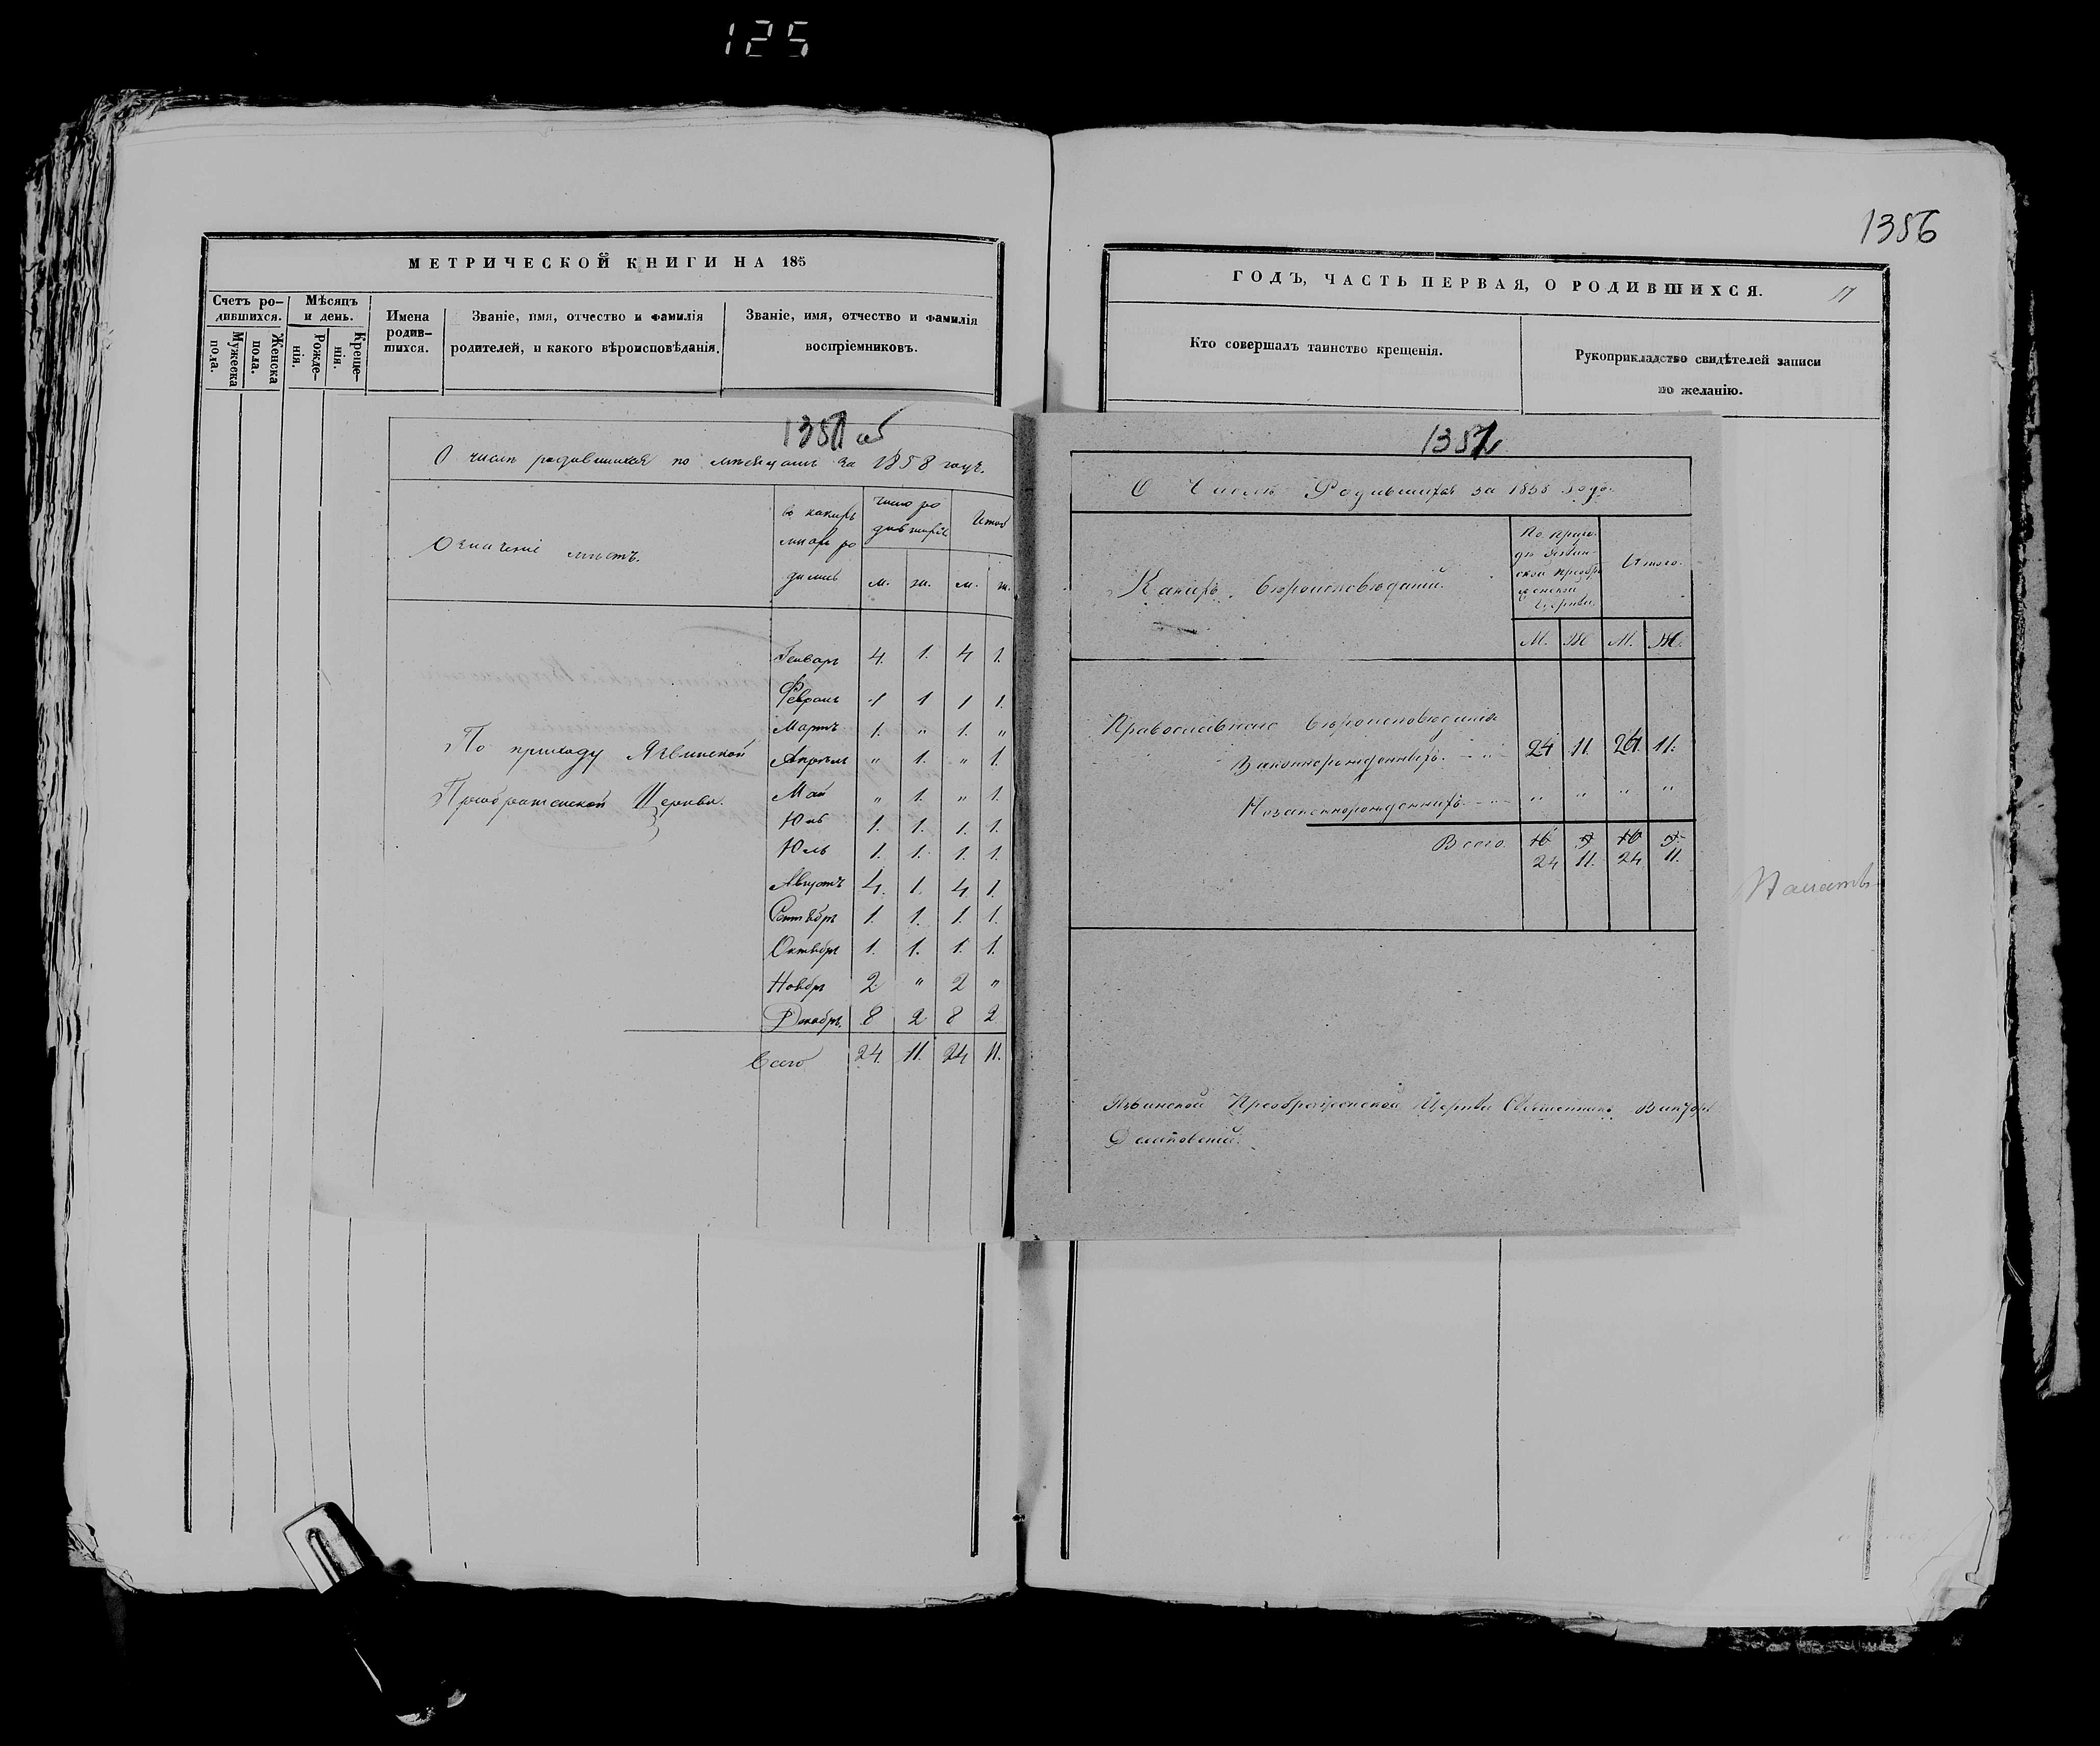 125
МЕТРИЧЕСКОЙ КНИГИ НА 185
Счетъ ро-
дившихся.
Мѣсяцъ
и день.
Мужеска
пола.
Женска
пола.
Рожде-
нія.
Креще-
нія.
Имена
родив-
шихся.
Званіе, имя, отчество и фамилія
родителей, и какого вѣроисповѣданія.
Званіе, имя, отчество и фамилія
воспріемниковъ.
О числѣ родившихся по мѣсяцамъ за 1858 годъ.
Означеніе мѣстъ.
число ро
дившихся
м. ж. м. ж.
По приходу
Преображенской Церкви.
Генварь 4. 1. 4 1.
Февраль 1 1 1 1.
Мартъ 1. " 1. "
Апрѣль " 1. " 1.
Май " 1. " 1.
Юнь 1. 1. 1. 1.
Юль 1. 1. 1. 1.
Августъ 4. 1. 4 1.
Сентябрь 1. 1. 1. 1.
Октябрь 1. 1. 1. 1.
Ноябрь 2. " 2 "
Декабрь 8 2 8 2
Всего 24. 11. 24 11.
1386
ГОДЪ, ЧАСТЬ ПЕРВАЯ, О РОДИВШИХСЯ.
Кто совершалъ таинство крещенія.
Рукоприкладство свидѣтелей записи
по желанію.
О Числѣ Родившихся за 1858 годъ.
Какихъ вѣроисповѣданій.
Итого.
М. Ж М. Ж.
Православнаго вѣроисповѣданія
Законнорожденныхъ. 24 11. 24 11.
Незаконнорожденныхъ " " " "
Всего
24 11. 24 11.
Преображенской Церкви Священникъ Викторъ